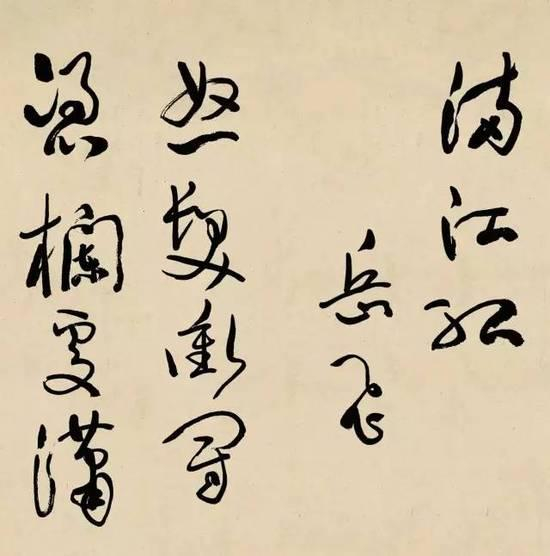 滿江紅
岳飛
怒髮衝冠
憑欄處瀟